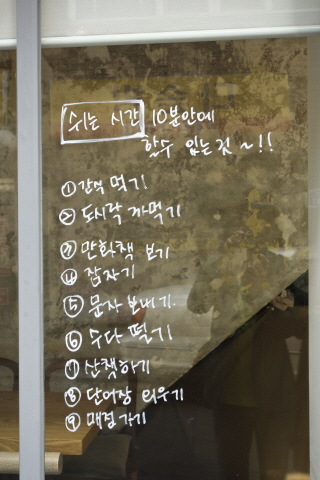 쉬는 시간 10분안에
할수 있는것~!!
① 간식 먹기
② 도시락 까먹기
③ 만화책 보기
④ 잠자기
⑤ 문자 보내기.
⑥ 수다 떨기
⑦ 산책하기
⑧ 단어장 외우기
⑨ 매점 가기